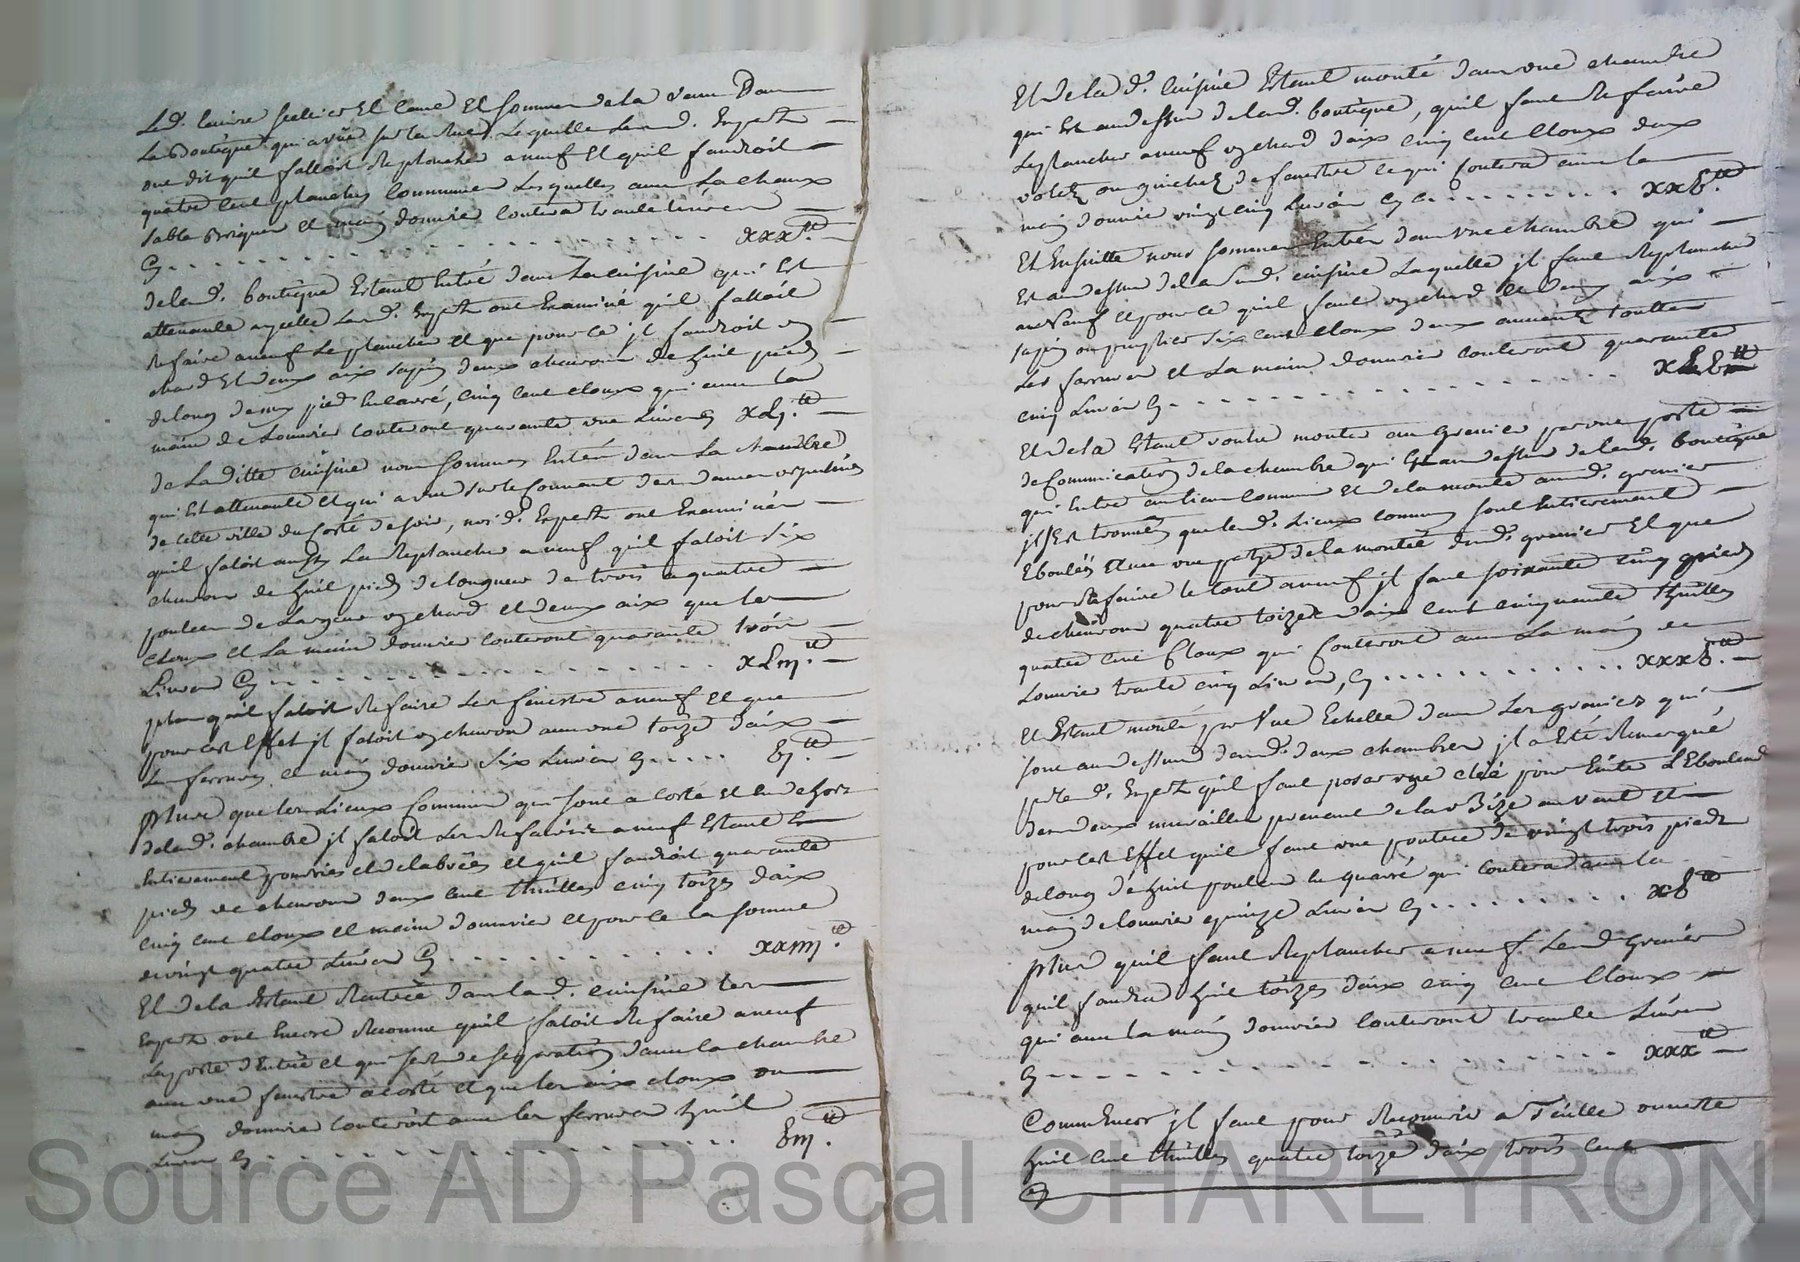 Led. cuivre scelcier Et cave Et sommes dela venu Dans
La Boutique qui a vüe sur la Rue Lequelle Lesd. Expertz
ont dit qu'il falloit Replancher a neuf Et quil faudroit
quatre cent planches Communes Lesquelles avec La chaux
sable briques et main douvrier Coutera trante livres
Cy - - - - - - - - - - - xxx.tt
delad. boutique Estant Entré dans La cuisine qui Est
attenante aycelle Lesd. Expertz ont Examiné quil falloit
Refaire aneuf Le plancher Et que pour ce jl faudroit un
chard Et deux aix sapin deux cheurons de huit pieds
delong demy pied En carré, cinq cent cloux qui avec La
main de Louvrier Couteront quarante une Livres xLj.tt
de Laditte cuisine nous sommes Entré dans La chambre
qui Est attenante Et qui a vue sur le Couvant des dames vrsulines
de cette ville du Costé de soir, nosd. Expertz ont Examinés
quil faloit aussy La Replancher a neuf quil faloit six
cheurons de huit pieds de longueur de trois a quatre
poulces de Largeur vn chard et deux aix que les
Cloux et La main douvrier Couteront quarante trois
Livres Cy - - - - - - - - - - - xLiij.tt
plus quil faloit Refaire Les fenestre a neuf Et que
pour cest Effet jl faloit vn cheuron avec vne toize daix
Les ferrures et main douvrier six Livres Cy - - - - - vj.tt
plus que les Lieux Commun qui sont a Costé et En dehors
delad. chambre jl faloit Les Refaire a neuf Estant
Entierement pourries et delabrées et quil faudroit quarante
pieds de cheurons deux cent thuilles cinq toizes daix
cinq cent cloux et main douvrier et pour ce la somme
de vingt quatre Livres Cy - - - - - - - - - xxiiij.tt
Et de la Estant Rentrée dans lad. cuisine les
Expertz ont Encore Reconnu quil faloit Refaire a neuf
La porte d'Entrée et qui sert de separation dans la chambre
avec vne fenestre a costé et que les aix cloux ou
main douvrier Couteroit avec les ferrures huit
Livres Cy - - - - - - - - - - viij.tt
Et dela d. Cuisine Estant monté dans vne chambre
qui Est audessus delad. boutique, quil faut Refaire
Le plancher a neuf vn chard daix cinq cent Cloux deux
voletz ou guichetz de fenestre ce qui Coutera avec la
main douvrier vingt cinq Livres Cy - - - - - - - - xxv.tt
Et Ensuitte nous sommes Entrés dans vne chambre qui
Est audessus de la susd. cuisine Laquelle jl faut Replancher
aneuf Et pour ce quil faut vn chard et deux aix
sapin ou peuplier six cent Cloux deux auventz toutes
Les ferrures Et La main douvrier Couteront quarante
cinq Livres Cy - - - - - - - - - - - - xLv.tt
Et dela Estant voulu monter au grenier par vne porte
de Communication de la chambre qui Est audessus delad. boutique
qui Entre au lieu Commun Et dela monté aud. grenier
jl sest trouvé que lesd. Lieux Commun sont Entierement
Eboulées Et une partye de la montée dud. grenier Et que
pour Refaire le tout aneuf jl faut soixante cinq pieds
de cheurons quatre toizes daix Cent cinquante thuilles
quatre cent Cloux qui Couteront avec La main de
Louvrier trante cinq Livres, Cy - - - - - - - - - - xxxv.tt
Et Estant monté par vne Echelle dans Les greniers qui
sont audessus desd. deux chambres jl a Esté Remarqué
par lesd. Expertz quil faut poser vne clée pour Eviter L'Eboulem.t
des deux murailles prenant de la Bize au vent Et
pour cest Effet quil faut vne poutre de vingt trois pieds
de long de huit poulces En quarré qui Coutera avec la
main de louvrier quinze Livres Cy - - - - - - - - - xv.tt
plus quil faut Replancher a neuf Lesd. grenier
quil faudra huit toizes daix cinq cent Cloux
qui avec la main douvrier Couteront trante Livres
Cy - - - - - - - - - - - - - - - xxx.tt
Comme Encor jl faut pour Recouvrir a Tuille ouverte
huit cent thuilles quatre toize daix trois cent
Source AD Pascal CHAREYRON